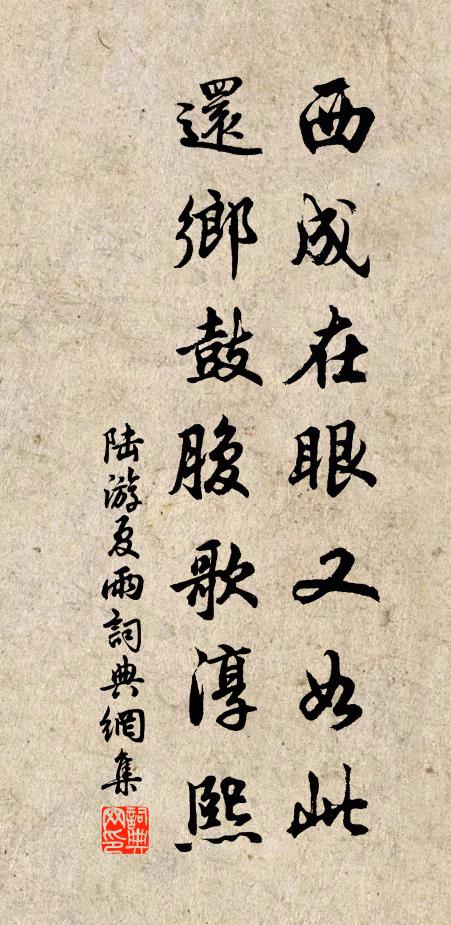 西成在眼又如此
還鄉鼓腹歌淳熙
陸游夏雨詞典網集
詞典網印